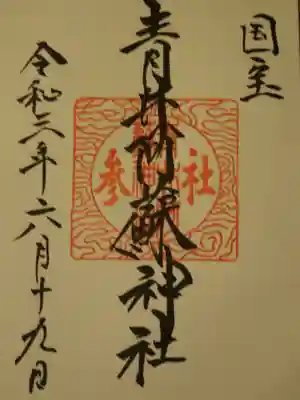 国宝
青井阿蘇神社
令和三年六月十九日
参社